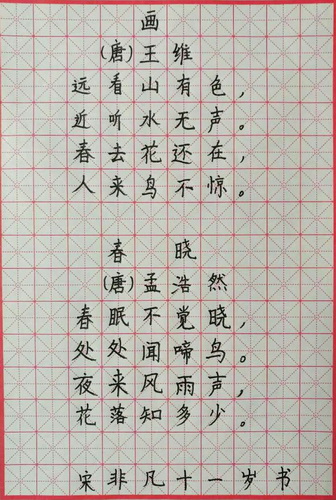 画
(唐)王维
远看山有色，
近听水无声。
春去花还在，
人来鸟不惊。
春晓
(唐)孟浩然
春眠不觉晓，
处处闻啼鸟。
夜来风雨声，
花落知多少。
宋非凡十一岁书